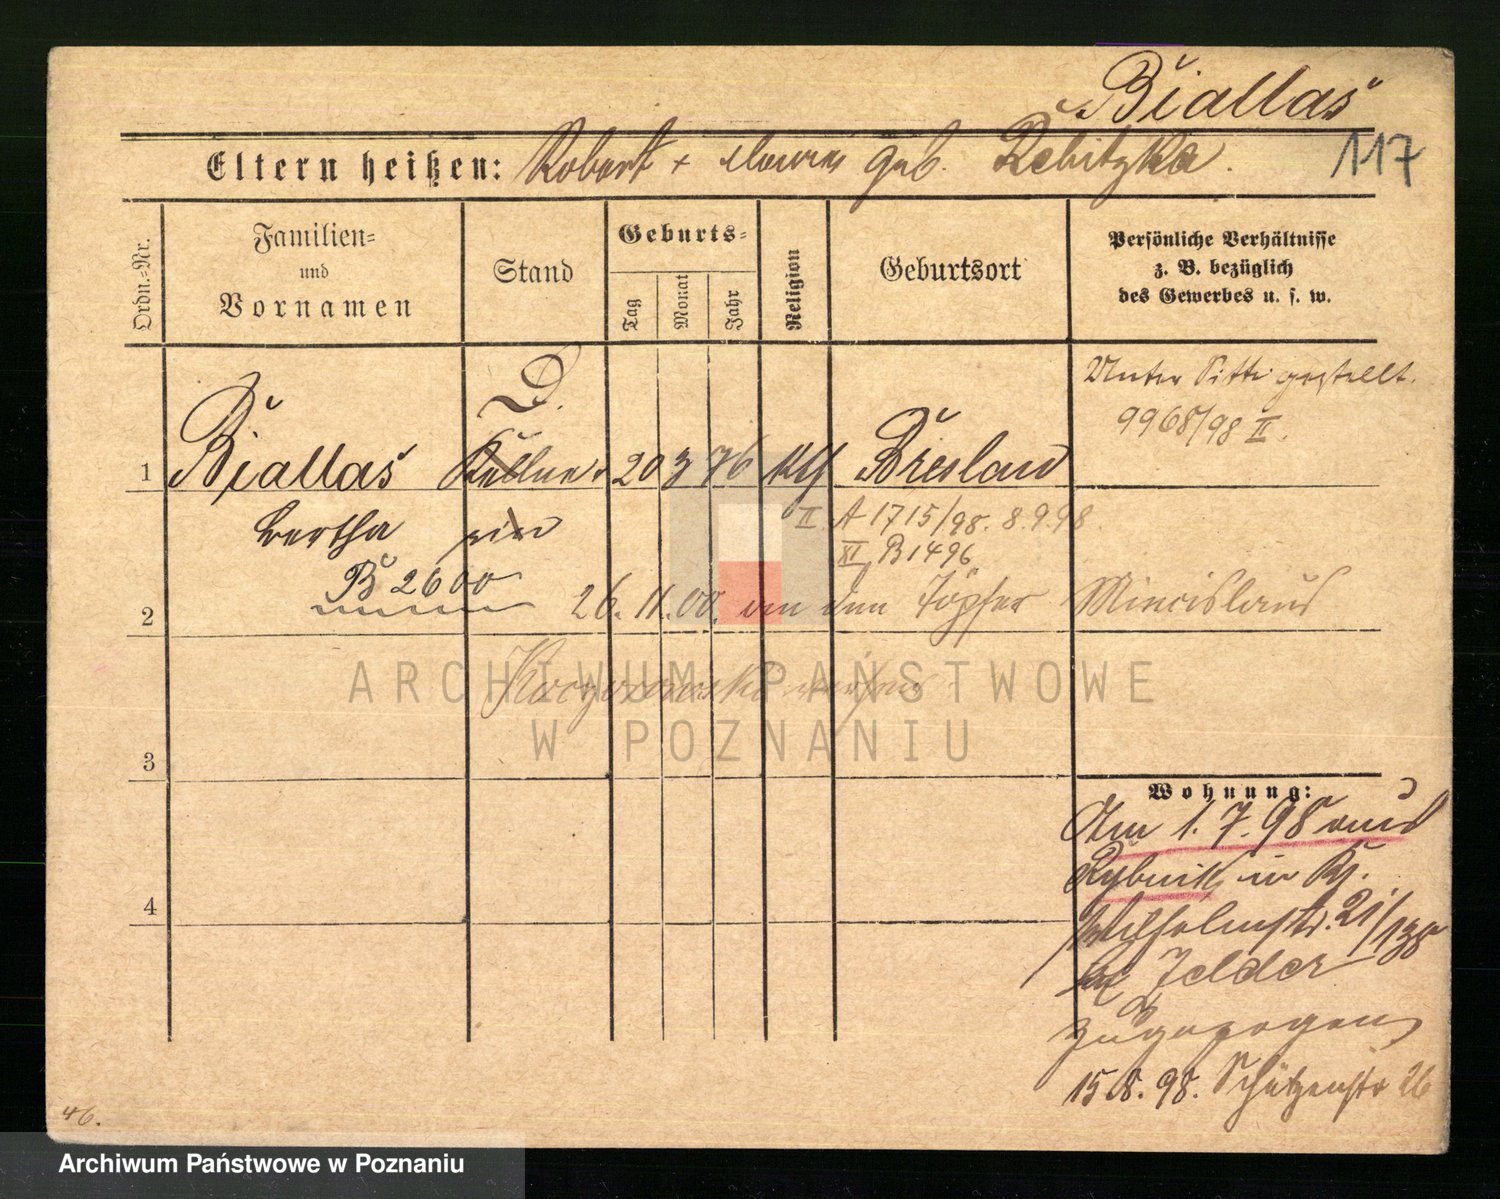 Biallas
117
Eltern heißen: Robert + geb. Rebitzka.
Ordn.-Nr.
Familien-
und
Vornamen
Stand
Geburts-
Tag
Monat
Jahr
Religion
Geburtsort
Persönliche Verhältnisse
z. B. bezüglich
des Gewerbes u. s. w.
D.
Unter Sitte gestellt.
9968/98 II.
1 Biallas Kellner 20 3 76 kth Breslau
Bertha in
II. A 1715/98. 8.9.98
XI B 1496
B 2600
2 26. 11. 00. an den Töpfer Miecislaus
ARCHIWUM PAŃSTWOWE
W POZNANIU
3
Wohnung:
Am 1.7.98 aus
Rybnik in
4
Wilhelmstr. 21/138
bei Felder
zugezogen
15.8.98. Schützenstr 26
46.
Archiwum Państwowe w Poznaniu